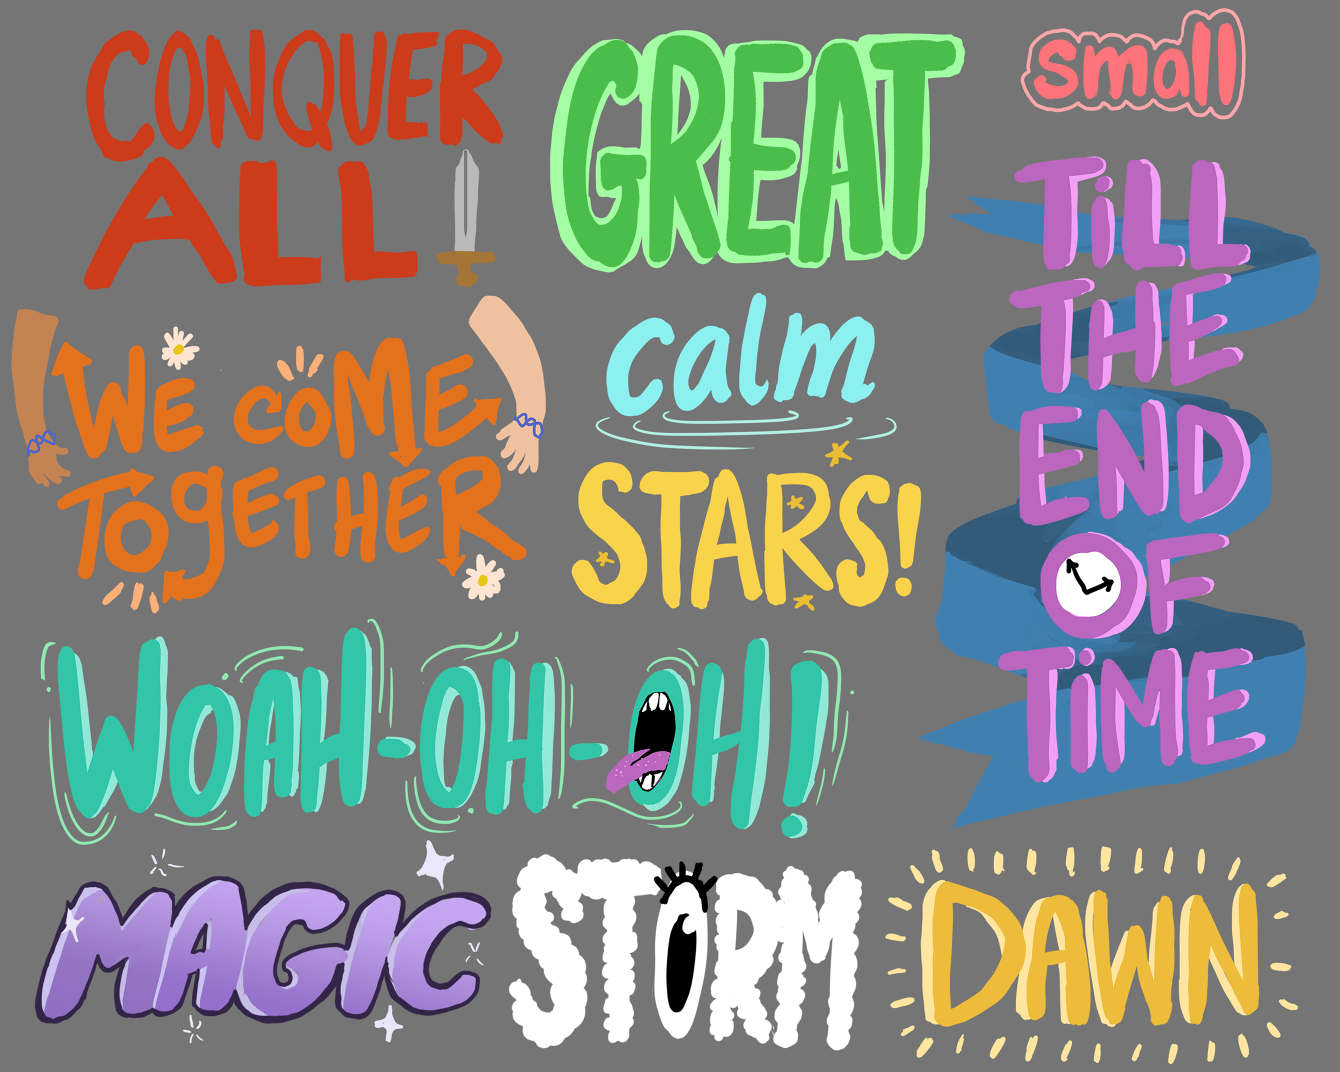 CONQUER
ALL
GREAT
small
WE COME
TOGETHER
calm
STARS!
TiLL
THE
END
OF
TiME
WOAH-OH-OH!
MAGIC
STORM
DAWN